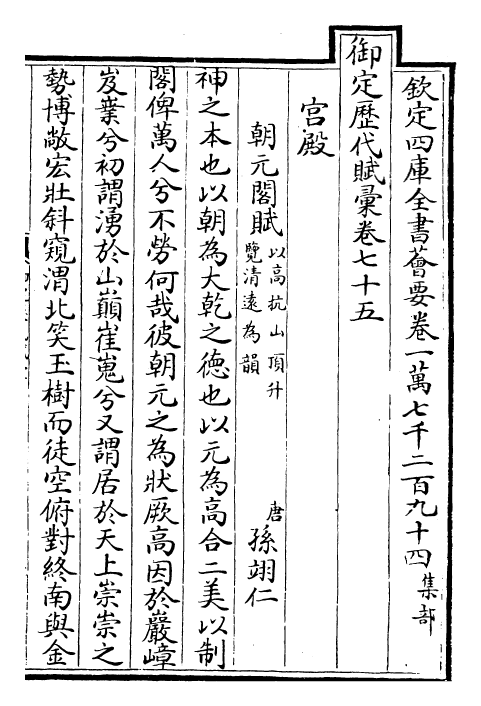 欽定四庫全書薈要卷一萬七千二百九十四 集部
御定歷代賦彙卷七十五
宫殿
朝元閣賦 以高抗山頂升
覽清遠為韻 唐 孫翊仁
神之本也以朝為大乾之德也以元為高合二美以制
閣俾萬人兮不勞何哉彼朝元之為狀厥高因於巖嶂
岌嶪兮初謂湧於山巔崔嵬兮又謂居於天上崇崇之
勢博敞宏壯斜窺渭北笑玉樹而徒空俯對終南與金